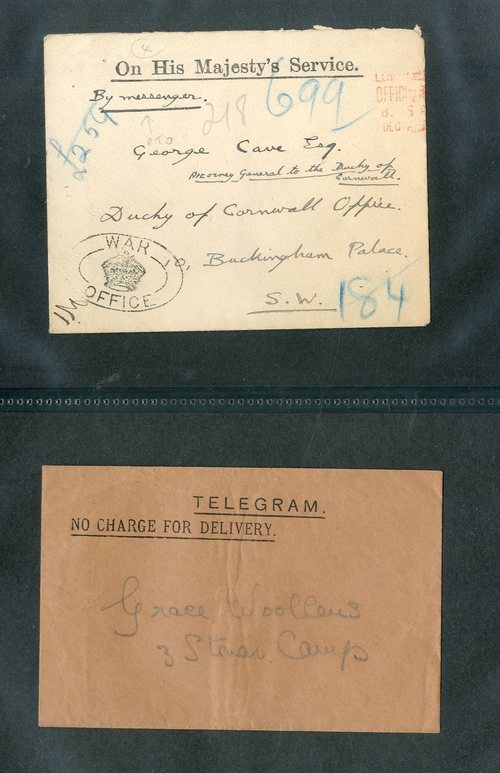 4
On His Majesty's Service.
By messenger.
£259
218
699
PTO
OFFICI
DEC
George Cave Esq.
Attorney General to the Duchy of
Cornwall.
Duchy of Cornwall Office.
Buckingham Palace.
S.W.
184
WAR
OFFICE
TELEGRAM.
NO CHARGE FOR DELIVERY.
Grace Woollens
3 Stores Camp